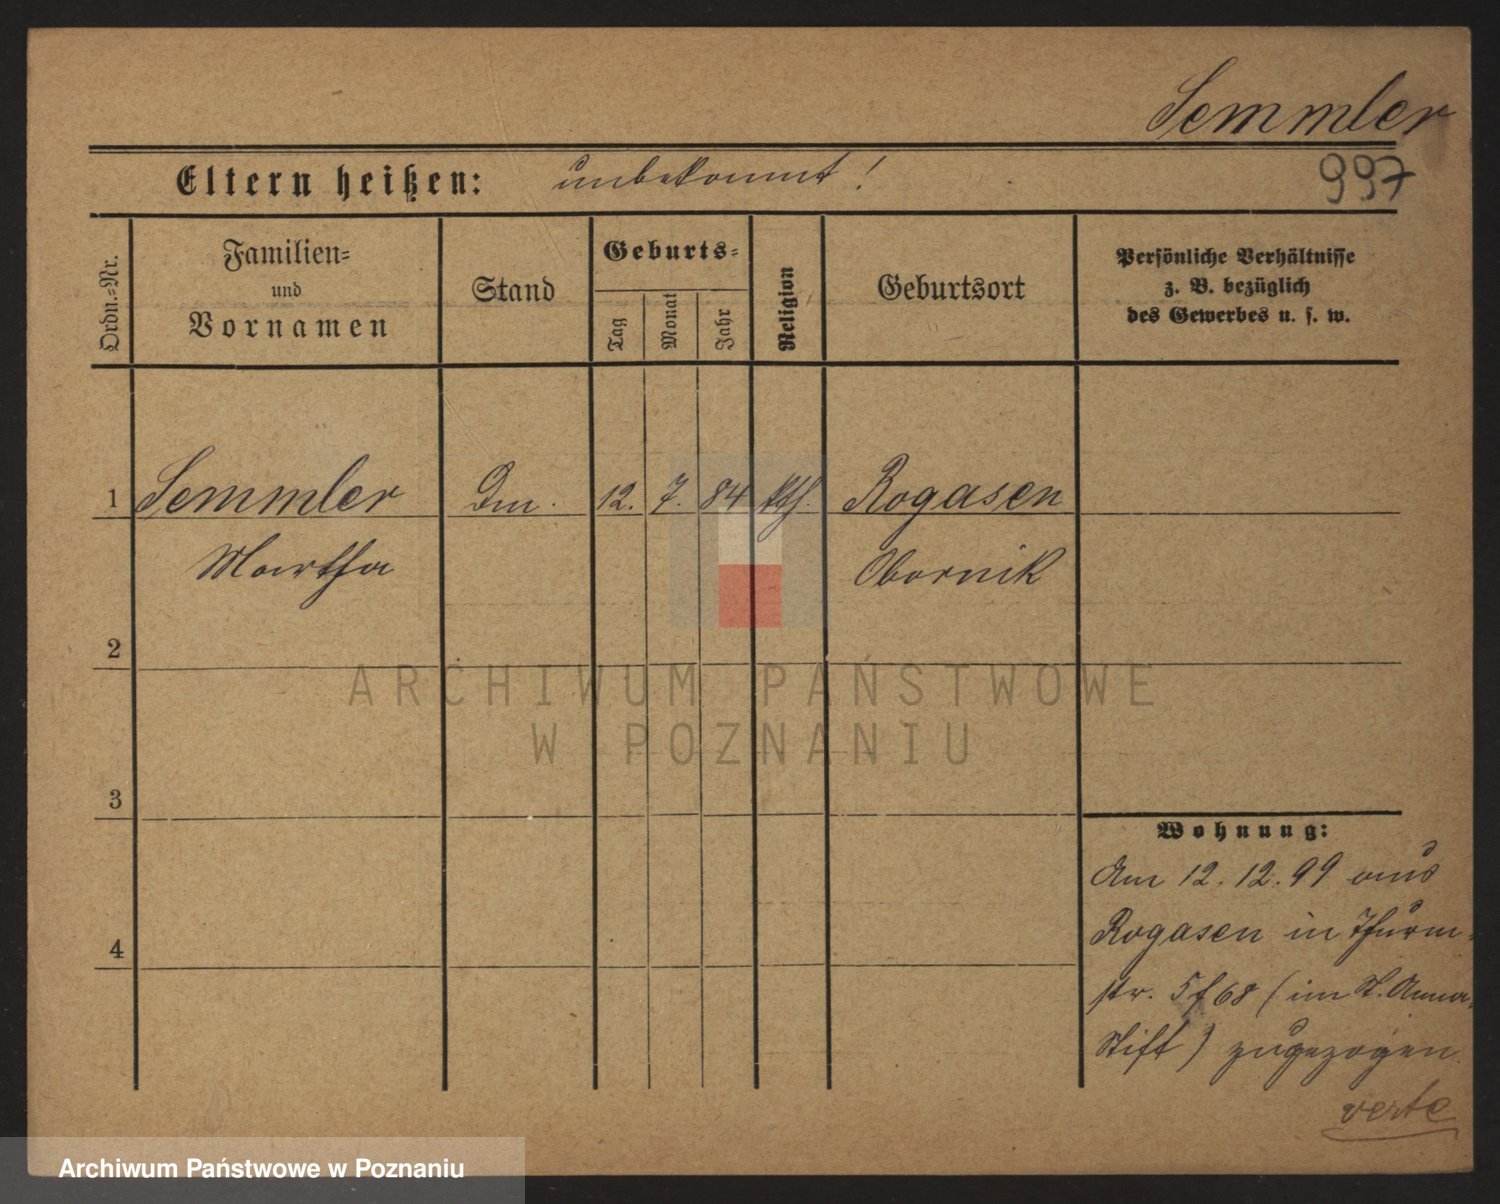 Semmler
997
Eltern heißen: unbekannt!
Ordn.-Nr.
Familien=
und
Vornamen
Stand
Geburts=
Tag
Monat
Jahr
Religion
Geburtsort
Persönliche Verhältnisse
z. B. bezüglich
des Gewerbes u. s. w.
1 Semmler 12. 7. 84 kth. Rogasen
Martha Obornik
2
3
4
Wohnung:
Am 12.12.99 aus
Rogasen in Thurm-
str. 5 68 (im St. Anna-
Stift) zugezogen
verte
ARCHIWUM PAŃSTWOWE
W POZNANIU
Archiwum Państwowe w Poznaniu